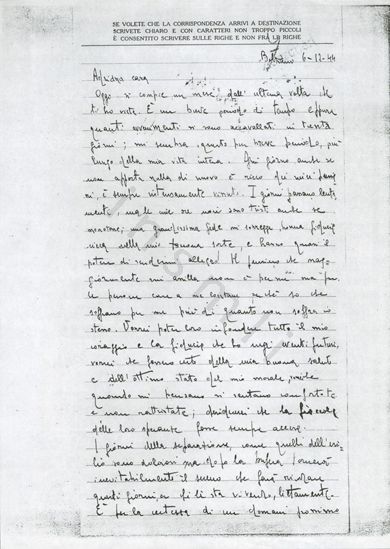 SE VOLETE CHE LA CORRISPONDENZA ARRIVI A DESTINAZIONE
SCRIVETE CHIARO E CON CARATTERI NON TROPPO PICCOLI
È CONSENTITO SCRIVERE SULLE RIGHE E NON FRA LE RIGHE
Bolzano 6-12-44
cara
Oggi si compie un mese dall'ultima volta che
ti ho vista. È un breve periodo di tempo eppure
quanti avvenimenti si sono accavallati in trenta
giorni; mi sembra, questo pur breve periodo, più
lungo della mia vita intera. Ogni giorno, anche se
non apporta nulla di nuovo è ricco di
è sempre intensamente vissuto. I giorni passano lenta
mente, ma le mie ore non sono tristi anche se
monotone; una grandissima fede mi sorregge, buona fiducia
nella mia sorte, e hanno quasi il
potere di rendermi allegro. Il pensiero che mag
giormente mi assilla non è per me ma per
le persone care a me perché so che
soffrono per me più di quanto non soffra io
stesso. Vorrei poter loro infondere tutto il mio
coraggio e la fiducia che ho negli eventi futuri,
vorrei che fossero certi della mia buona salute
e dell'ottimo stato del mio morale,
quando mi pensano si sentano confortate
e non rattristate; desidererei che la fiaccola
delle loro speranze fosse sempre accesa.
I giorni della separazione, come quelli dell'esi
lio sono dolorosi ma dopo la bufera tornerà
inevitabilmente il sereno che farà
questi giorni, a chi li sta vivendo,
È per la certezza di un domani prossimo